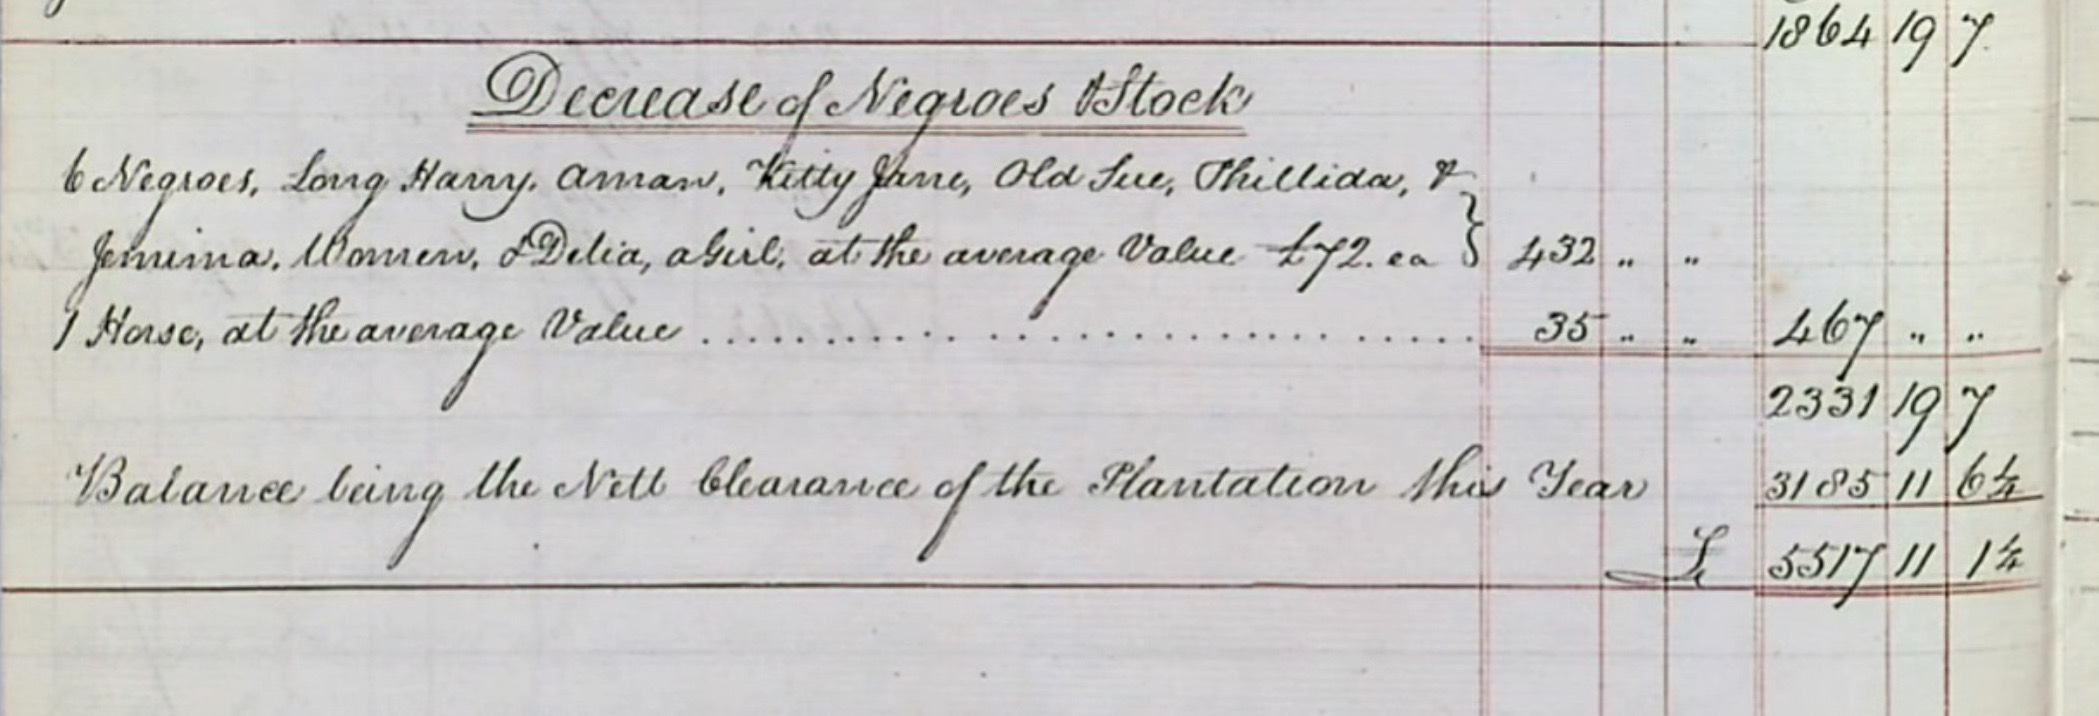 1864 19 7
Decrease of Negroes & Stock
6 Negroes, Long Harry, Aman, Kitty Jane, Old Sue, Phillida, &
Jemima, Women, & Delia, a Girl, at the average Value £72. ea } 432 " "
1 Horse, at the average Value .............................. 35 " " 467 " "
2331 19 7
Balance being the Nett Clearance of the Plantation this Year 3185 11 6¼
£ 5517 11 1¼